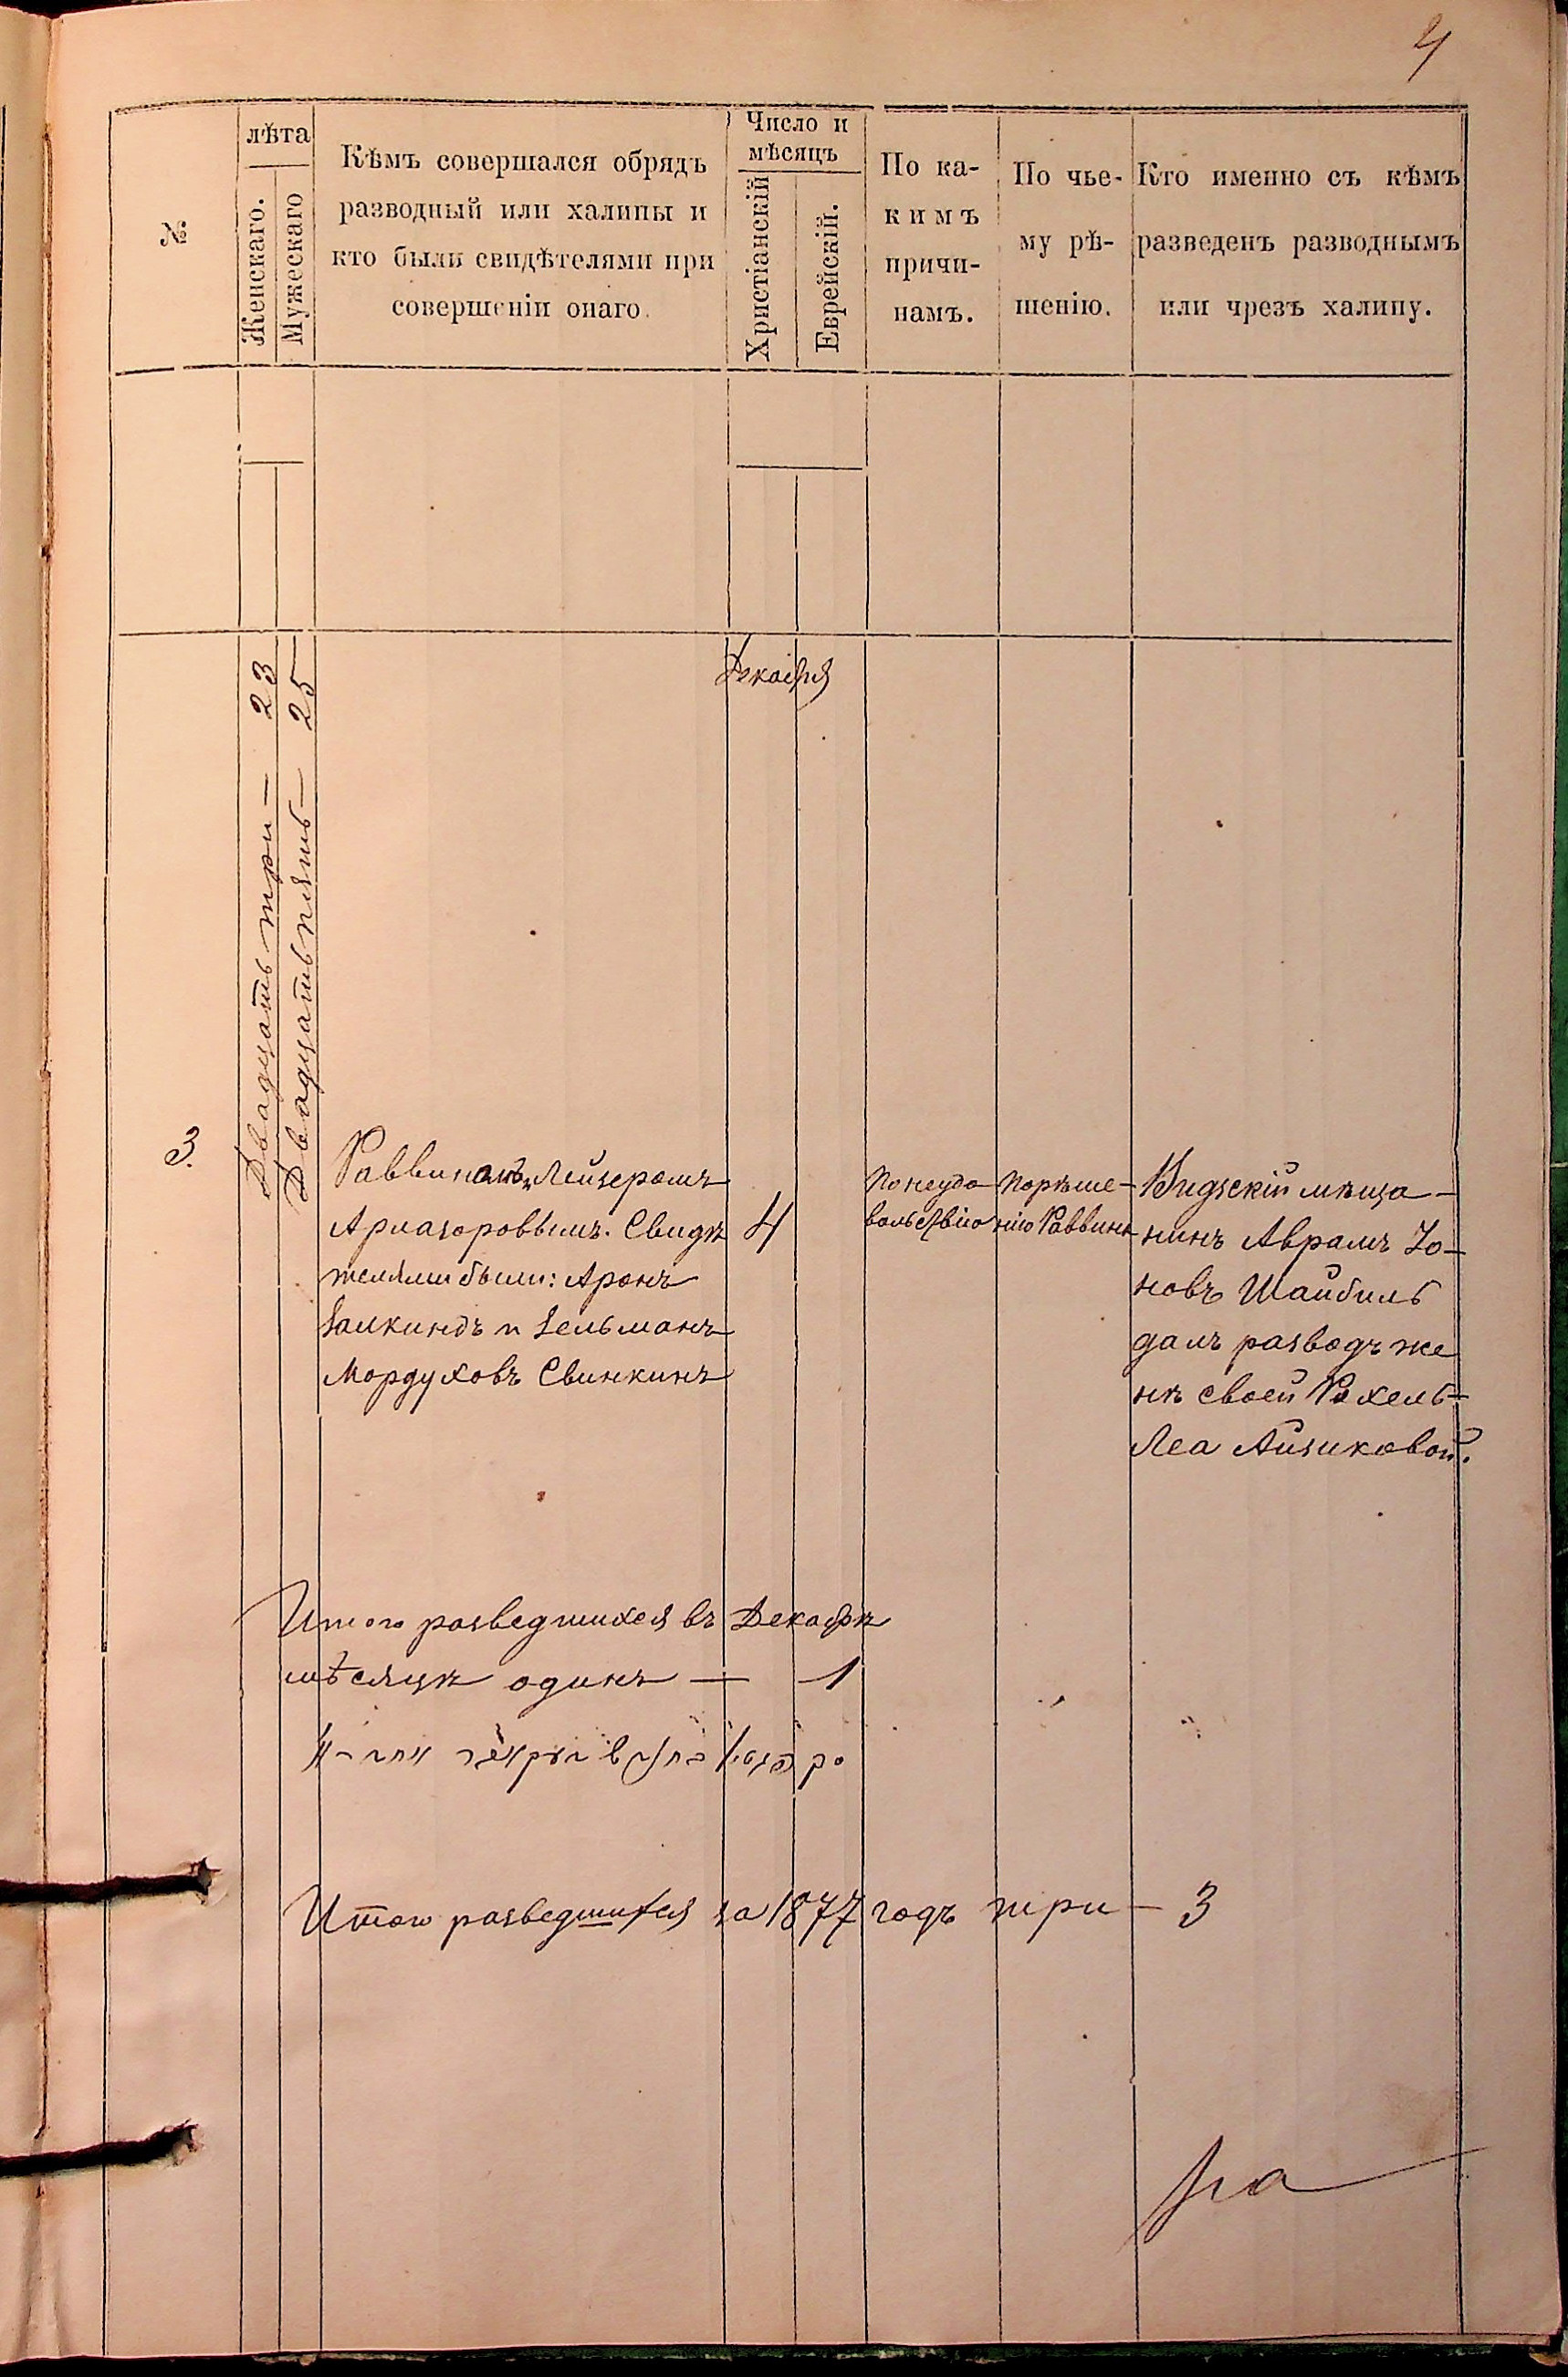 4
№
лѣта
Женскаго.
Мужескаго
Кѣмъ совершался обрядъ
разводный или халицы и
кто были свидѣтелями при
совершеніи онаго.
Число и
мѣсяцъ
Христіанскій
Еврейскій.
По ка-
кимъ
причи-
намъ.
По чье-
му рѣ-
шенію.
Кто именно съ кѣмъ
разведенъ разводнымъ
или чрезъ халицу.
Декабря
3.
Двадцать три — 23
Двадцать пять — 25
Раввиномъ Лейзеромъ
Арлазоровымъ. Свидѣ
телями были: Аронъ
Залкиндъ и Зельманъ
Мордуховъ Свинкинъ
4
По неудо
вольствію
По рѣше-
нію Раввина
Видзскій мѣща-
нинъ Абрамъ Зо-
новъ Шайбиль
далъ разводъ же
нѣ своей Рохель-
Леа Айзиковой.
Итого разведшихся въ Декабрѣ
мѣсяцѣ одинъ — 1
Итого разведшихся за 1877 годъ три — 3